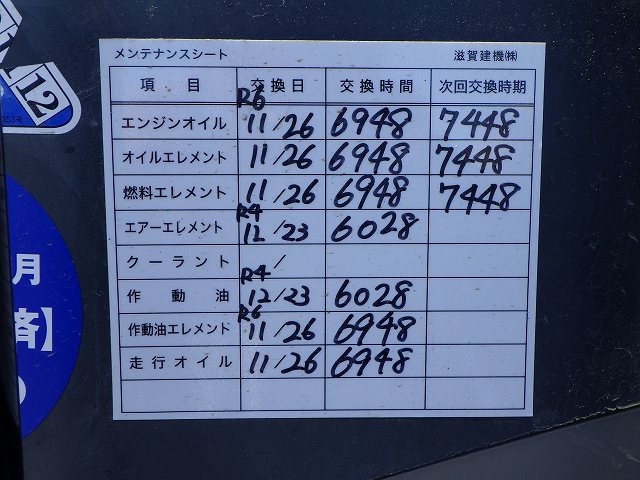 メンテナンスシート 滋賀建機㈱
項目 交換日 交換時間 次回交換時期
エンジンオイル R6 11/26 6948 7448
オイルエレメント 11/26 6948 7448
燃料エレメント 11/26 6948 7448
エアーエレメント R4 12/23 6028
クーラント /
作動油 R4 12/23 6028
作動油エレメント R6 11/26 6948
走行オイル 11/26 6948
12
353号
月
済】